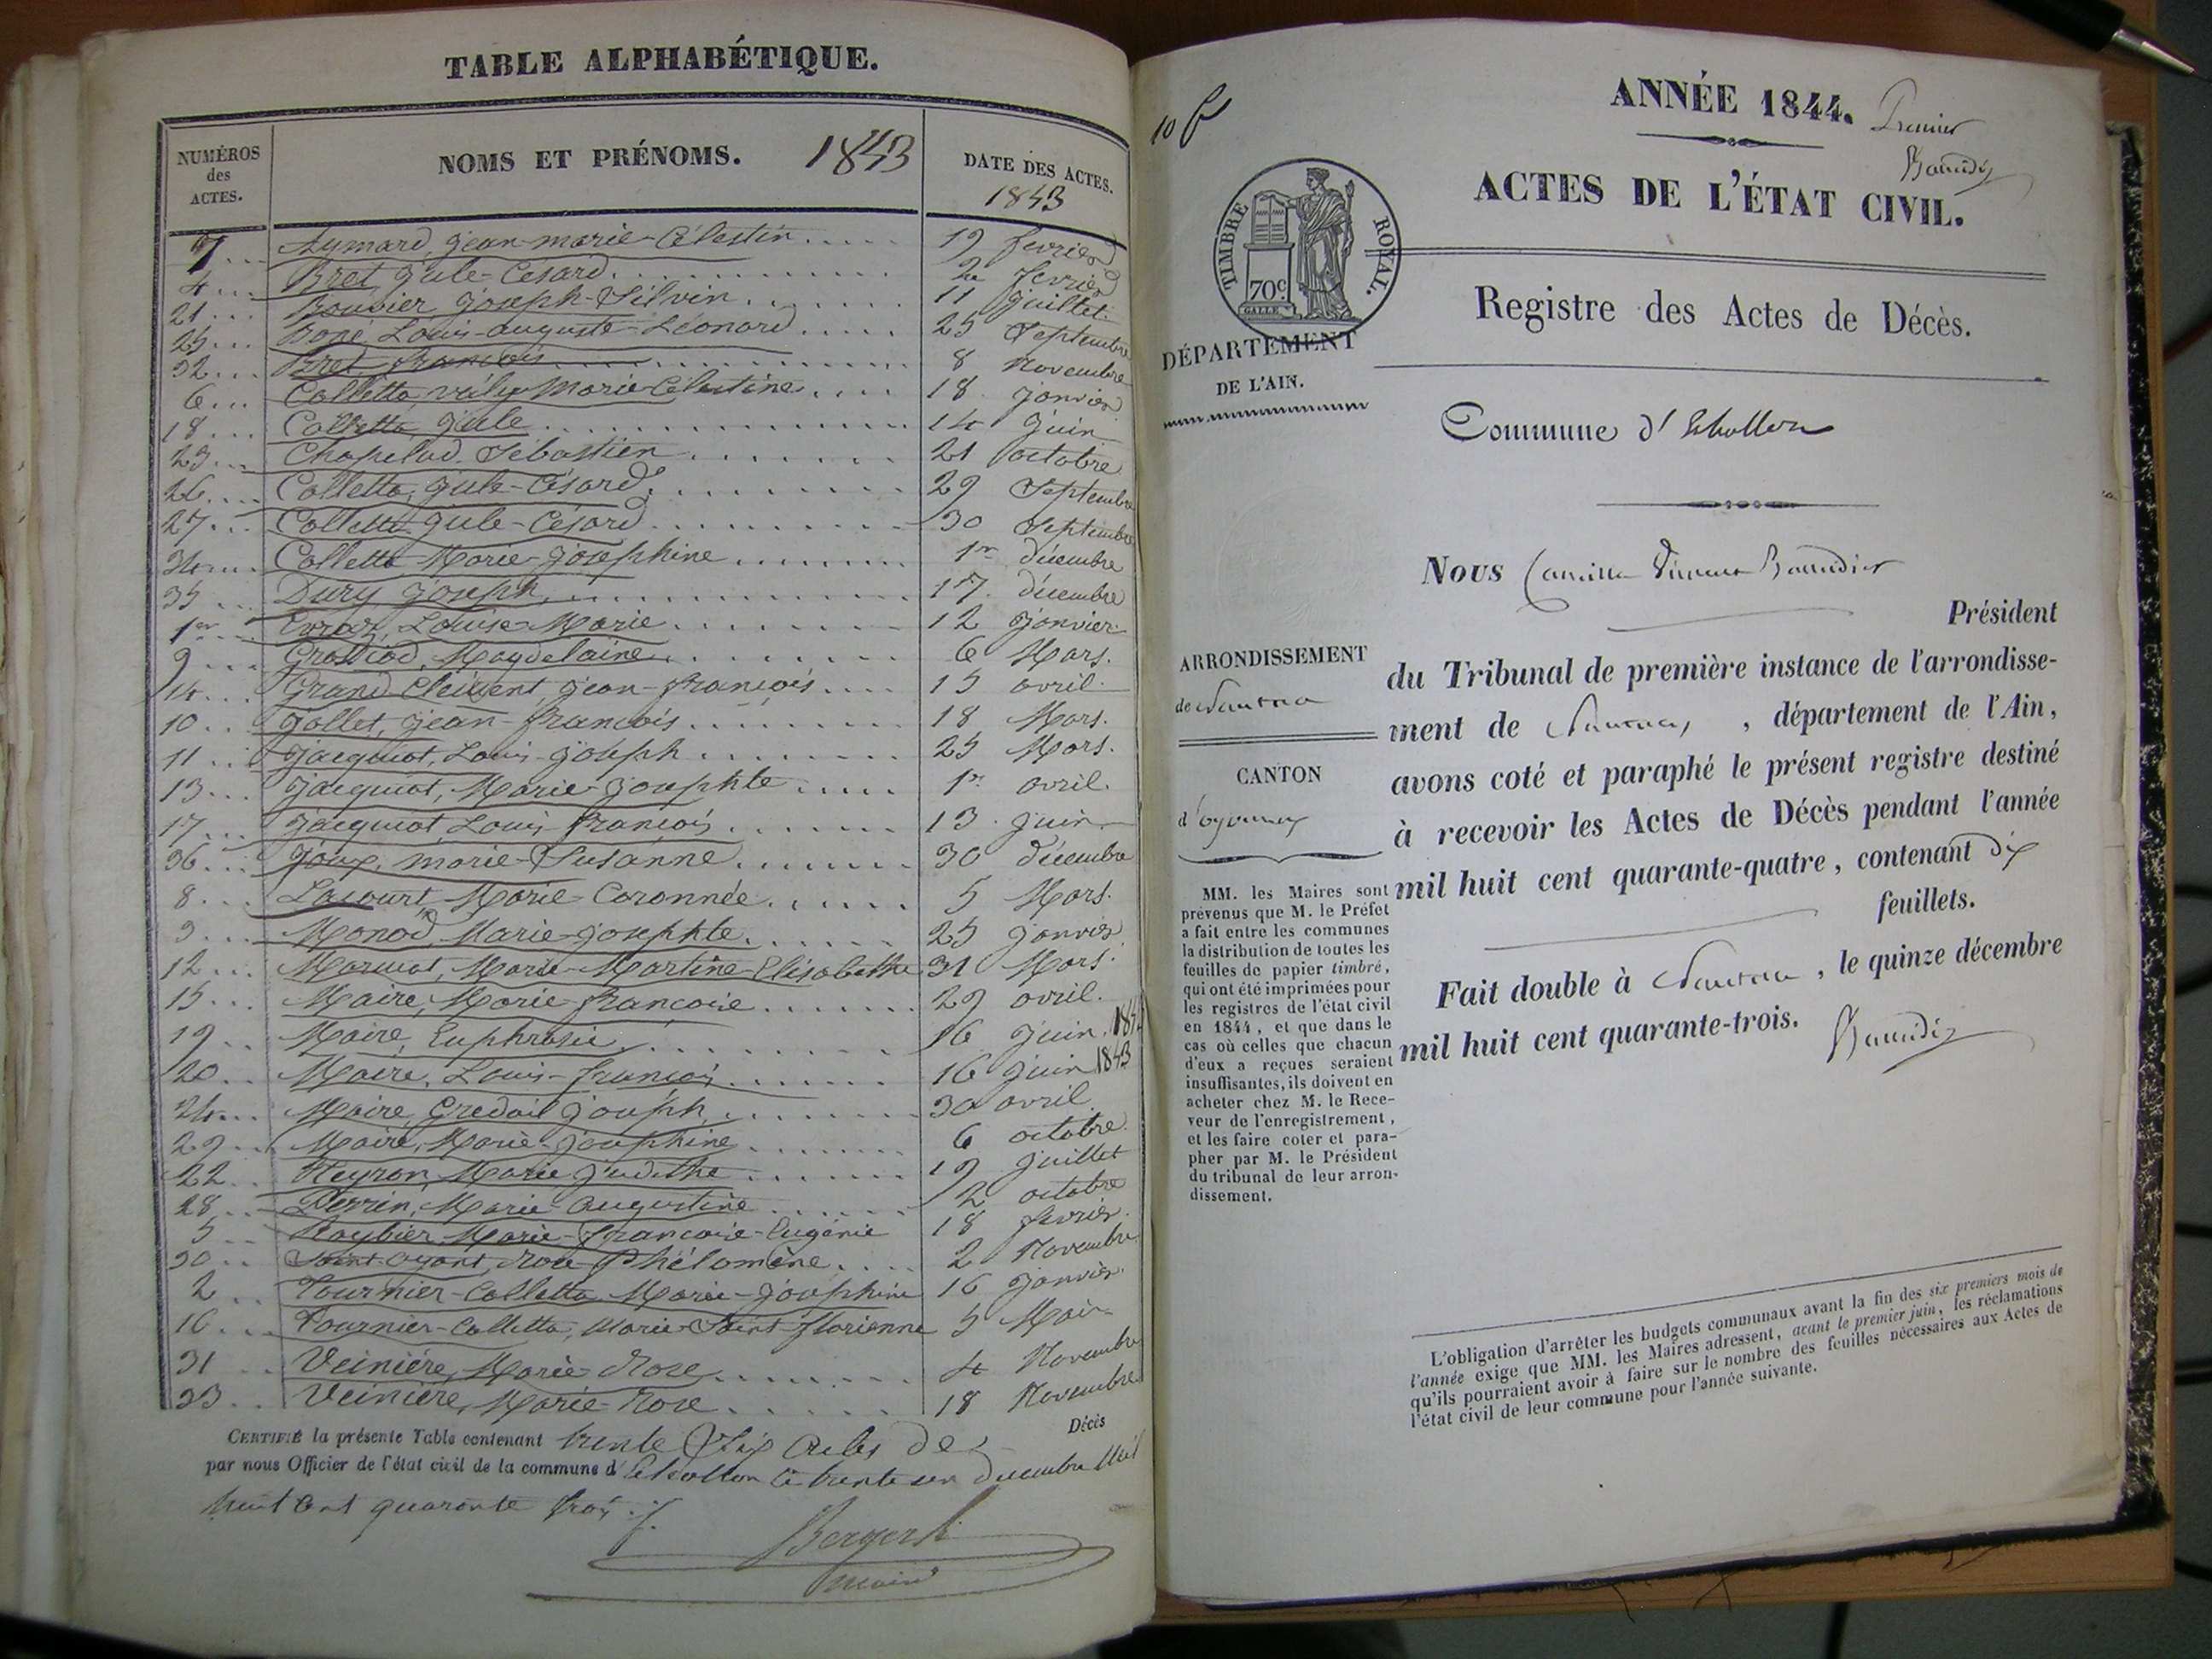 TABLE ALPHABÉTIQUE.
NUMÉROS des ACTES.
NOMS ET PRÉNOMS. 1843
DATE DES ACTES. 1843
7... Aymard, jean-marie-Célestin..... 19 fevrier
4... Bret Jule-Cesard 2 fevrier
21... Bouvier Joseph-Silvin 11 Juillet
25... Boné Louis-auguste-Léonard 25 Septembre
32... Bret francois 8 Novembre
6... Colletta Marie Celestine 18 Janvier
18... Colletta Jule 14 Juin
23... Chapelud Sébastien 21 octobre
26... Colletta, Jule-Césard 29 Septembre
27... Colletta Jule-Césard 30 Septembre
34... Colletta Marie-Josephine 1er décembre
35... Dury Joseph 17. décembre
1er Evraz, Louise-Marie 12 Janvier
9... Magdelaine 6 Mars.
14... Grand Clément Jean-francois 15 avril
10... Jollet, Jean-francois 18 Mars.
11... Jacquiot, Louis-Joseph 25 Mars.
13... Jacquiot, Marie-Josephte 1er avril.
17... Jacquiot Louis francois 13. Juin
36... Joux, marie-Susanne 30 décembre
8... Lacourt Marie-Coronnée 5 Mars.
3... Monod Marie-Josephte 25 Janvier
12... Marie-Martine-Elisabethe 31 Mars.
15... Maire, Marie francoise 29 avril.
19... Maire, Euphrosie 16 Juin.
20... Maire, Louis-francois 16 Juin 1843
24... Maire, Joseph 30 avril
29... Maire, Marie-Josephine 6 octobre
22... Neyron, Marie Judithe 19 Juillet
28... Perrin, Marie Augustine 2 octobre
5... Marie-francoise-Eugénie 18 fevrier.
30... Saint-oyant Rose Phélomène 2 Novembre
2... Tournier-Colletta Marie-Josephine 16 Janvier
16... Tournier-Colletta, Marie-Saint-florienne 5 Mai
31 Veiniére, Marie-Rose 4 Novembre
33.. Veiniére, Marie-Rose 18 Novembre
CERTIFIÉ la présente Table contenant trente Six Actes de Décès
par nous Officier de l'état civil de la commune d'Echallon le trente un décembre Mil
huit Cent quarante trois
maire
10 f
ANNÉE 1844. Premier
Baudier
ACTES DE L'ÉTAT CIVIL.
TIMBRE ROYAL. 70c
GALLE
DÉPARTEMENT
DE L'AIN.
Registre des Actes de Décès.
Commune d'Echallon
Nous Camille Baudier
Président
du Tribunal de première instance de l'arrondisse-
ment de Nantua, département de l'Ain,
avons coté et paraphé le présent registre destiné
à recevoir les Actes de Décès pendant l'année
mil huit cent quarante-quatre, contenant dix
feuillets.
Fait double à Nantua, le quinze décembre
mil huit cent quarante-trois.
ARRONDISSEMENT
de Nantua
CANTON
d'Oyonnax
MM. les Maires sont
prévenus que M. le Préfet
a fait entre les communes
la distribution de toutes les
feuilles de papier timbré,
qui ont été imprimées pour
les registres de l'état civil
en 1844, et que dans le
cas où celles que chacun
d'eux a reçues seraient
insuffisantes, ils doivent en
acheter chez M. le Rece-
veur de l'enregistrement,
et les faire coter et para-
pher par M. le Président
du tribunal de leur arron-
dissement.
L'obligation d'arrêter les budgets communaux avant la fin des six premiers mois de
l'année exige que MM. les Maires adressent, avant le premier juin, les réclamations
qu'ils pourraient avoir à faire sur le nombre des feuilles nécessaires aux Actes de
l'état civil de leur commune pour l'année suivante.